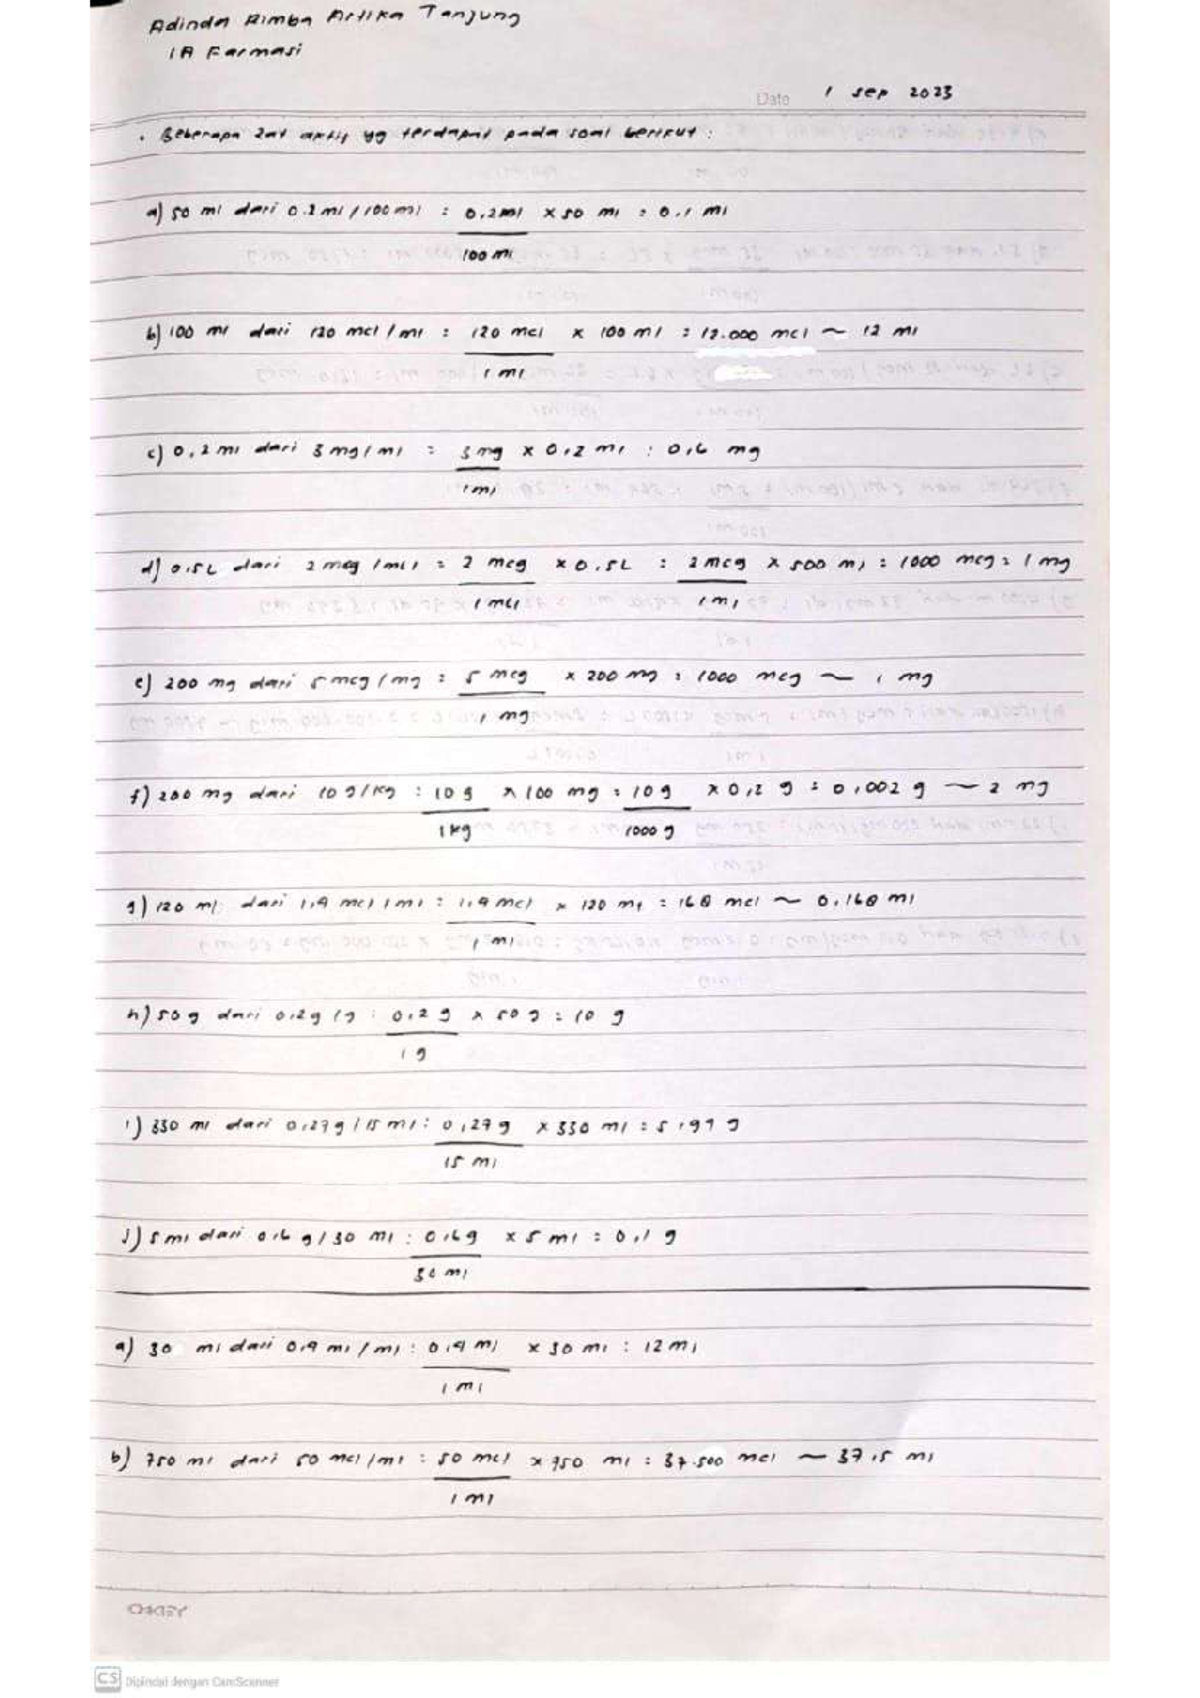 Adinda Rimba Artika Tanjung
1A Farmasi
Date 1 Sep 2023
. Beberapa zat aktif yg terdapat pada soal berikut :
a) 50 ml dari 0.2 ml / 100 ml : 0.2 ml x 50 ml : 0.1 ml
100 ml
b) 100 ml dari 120 mcl / ml : 120 mcl x 100 ml : 12.000 mcl ~ 12 ml
1 ml
c) 0,2 ml dari 3 mg / ml = 3 mg x 0,2 ml : 0,6 mg
1 ml
d) 0.5 L dari 2 mcg / ml = 2 mcg x 0.5 L : 2 mcg x 500 ml : 1000 mcg = 1 mg
1 ml 1 ml
e) 200 mg dari 5 mcg / mg : 5 mcg x 200 mg : 1000 mcg ~ 1 mg
1 mg
f) 200 mg dari 10 g / kg : 10 g x 100 mg : 10 g x 0,2 g : 0,002 g ~ 2 mg
1 kg 1000 g
g) 120 ml dari 1,4 mcl / ml : 1,4 mcl x 120 ml = 168 mcl ~ 0.168 ml
1 ml
h) 50 g dari 0,2 g / g : 0,2 g x 50 g : 10 g
1 g
i) 330 ml dari 0,27 g / 15 ml : 0,27 g x 330 ml : 5,94 g
15 ml
j) 5 ml dari 0,6 g / 30 ml : 0,6 g x 5 ml : 0,1 g
30 ml
a) 30 ml dari 0,4 ml / ml : 0,4 ml x 30 ml : 12 ml
1 ml
b) 750 ml dari 50 mcl / ml : 50 mcl x 750 ml : 37.500 mcl ~ 37,5 ml
1 ml
CS Dipindai dengan CamScanner